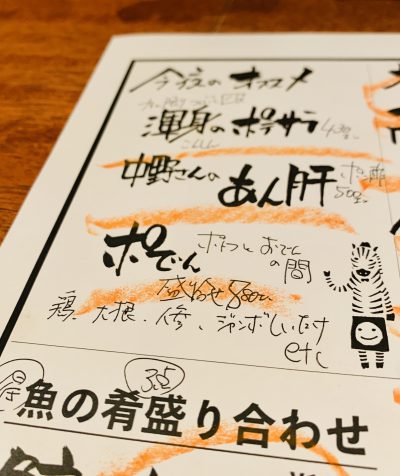 今夜のオススメ
渾身のポテサラ 430
こんしん
中野さんの あん肝 ポン酢
500
ポでん ポトフとおでん
の間
盛り合せ 800
鶏、大根、人参、ジャンボしいたけ
etc
魚の肴盛り合わせ